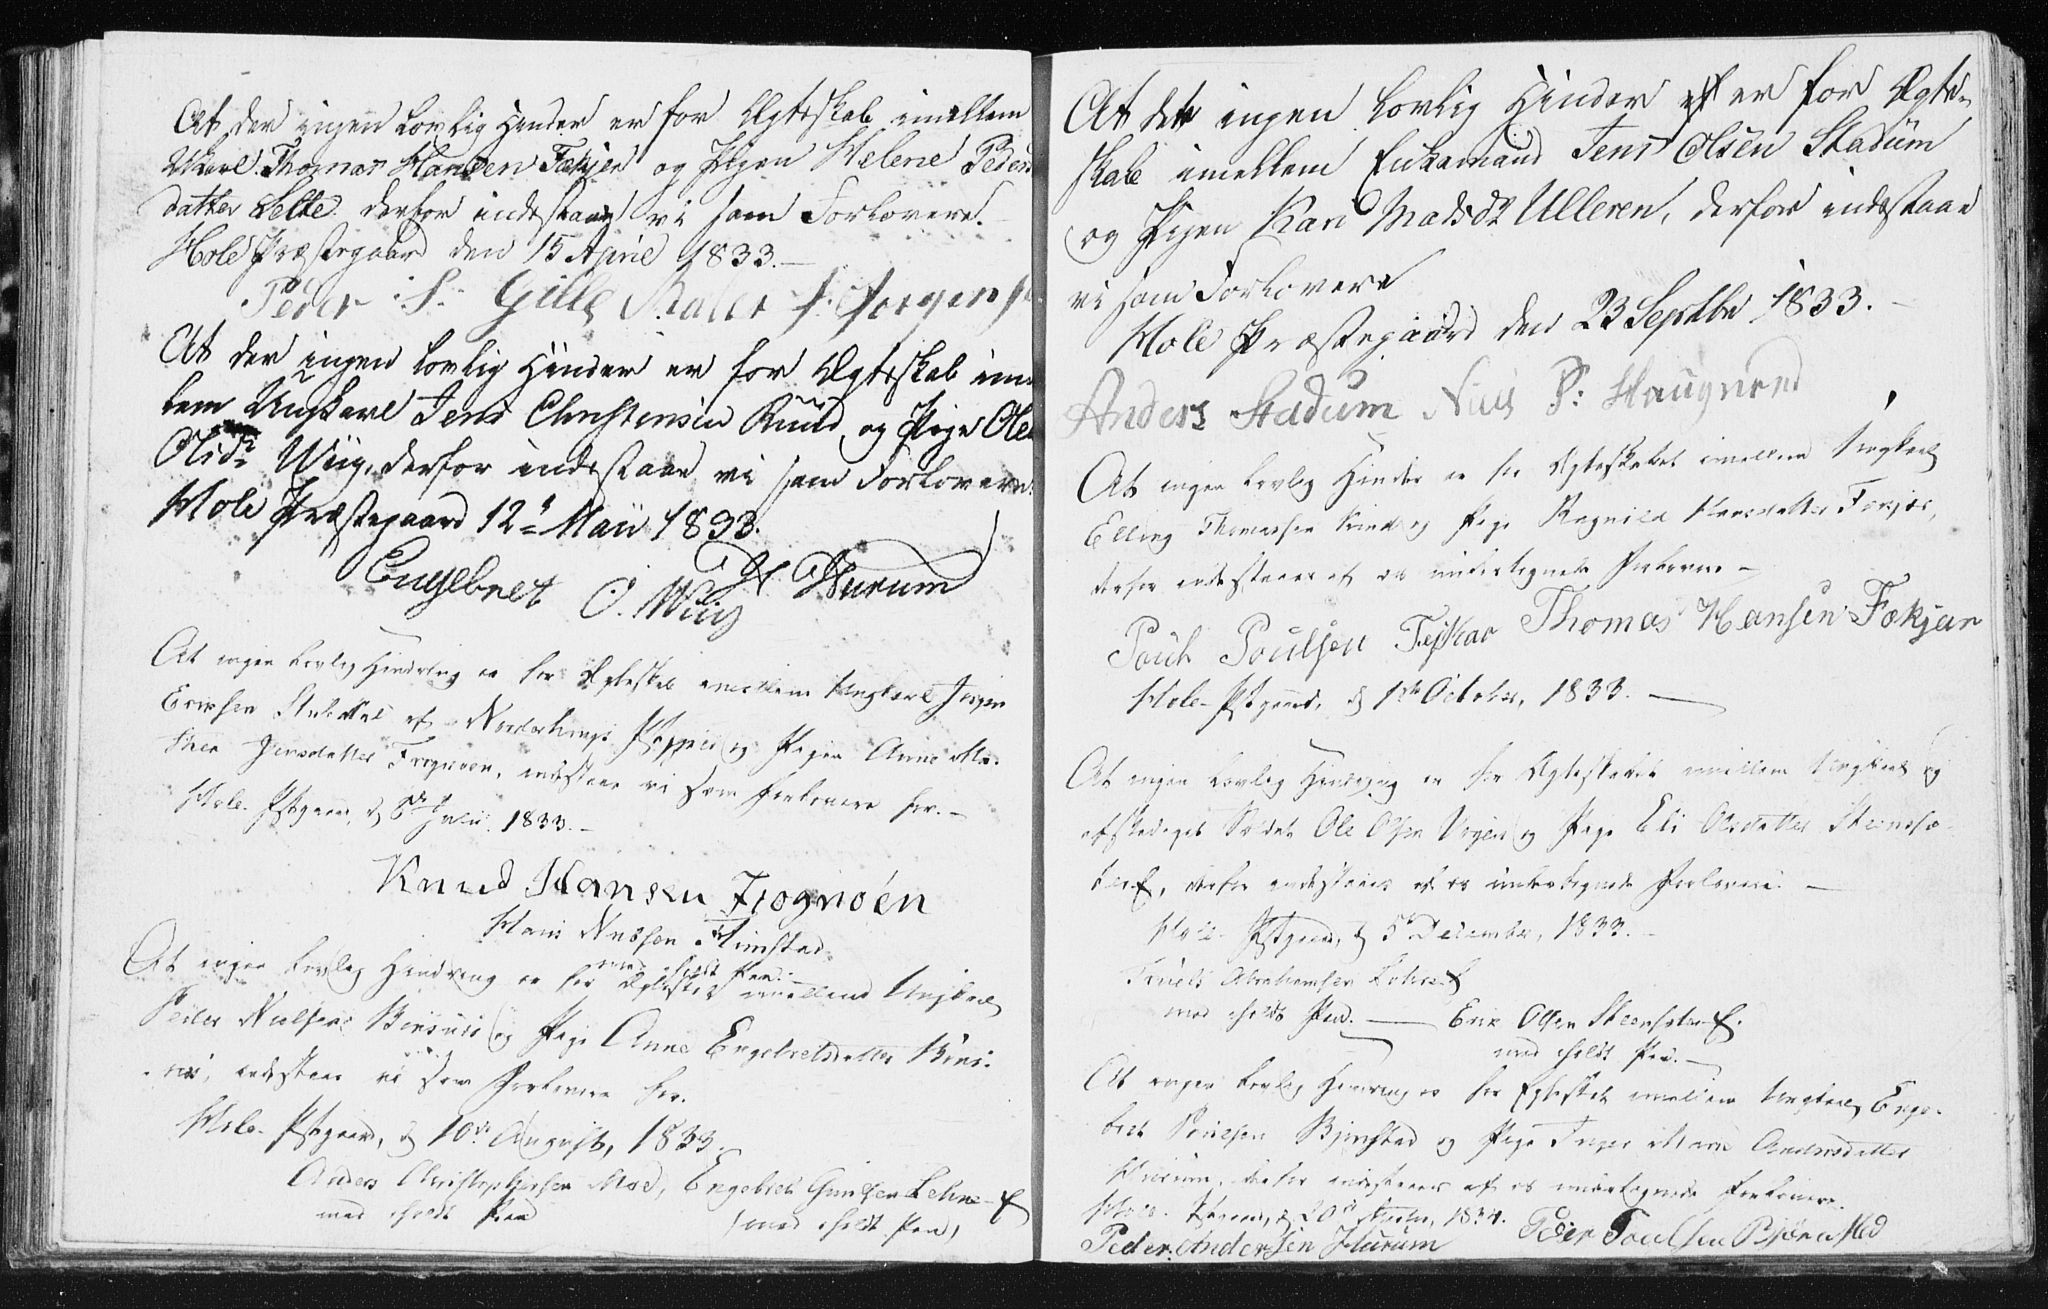 At der ingen lovlig Hinder er for Ægteskab imellem
Thomas Hansen Fækjer og Pigen Helene Peders
datter Selte. derfor indestaaer vi som Forlovere.
Hole Præstegaard den 15 April 1833.
Peder S. Gille
At der ingen lovlig Hinder er for Ægteskab imel
lem Ungkarl Jens Christensen Ruud og Pige Ole
Olsdr Wiig, derfor indestaae vi som Forlovere.
Hole Præstegaard 12te Maii 1833.
H. Hurum
Engebret O. Wiig
At ingen lovlig Hindring er for Ægteskab imellem Ungkarl Jørgen
Eriksen af Norderhougs og Pigen Anne Ma-
thea Jensdatter Frognøen, indestaae vi som Forlovere for.
Hole Pstgaard, d 8de Juli, 1833.
Knud Hansen Frognøen
Hans Nielsen Fimstad
med holdt Pen.
At ingen lovlig Hindring er for Ægteskab imellem Ungkarl
Peder Nielsen og Pige Anne Engebretsdatter
indestaae vi som Forlovere for.
Hole Pstgaard, d 10de August, 1833.
Anders Christophersen Moe, Engebret Gundersen
med holdt Pen med holdt Pen,
At der ingen lovlig Hinder er for Ægte-
skab imellem Enkemand Jens Olsen Stadum
og Pigen Kari Madsdr Ulleren, derfor indestaae
vi som Forlovere
Hole Præstegaard den 23 Septbr 1833.
Anders Stadum Niels P: Haugnred
At ingen lovlig Hinder er for Ægteskabet imellem Ungkarl
Elling Thomassen og Pige Ragnild Hansdatter Fækjer,
derfor indestaaes af os undertegnede Forlovere
Poul Poulsen Thomas Hansen Fækjær
Hole Pstgaard, d 1ste October, 1833.
At ingen lovlig Hindring er for Ægteskabet imellem Ungkarl og
afskediget Soldat Ole Olsen og Pige Eli Olsdatter Steensæ-
derfor indestaaes af os undertegnede Forlovere.
Hole Pstgaard, d 5te December, 1833.
Abrahamsen
med holdt Pen. Erik Olsen
med holdt Pen.
At ingen lovlig Hindring er for Egteskab imellem Ungkarl Enge-
bret Poulsen Bjørnstad og Pige Inger Marie Andersdatter
Hurum, derfor indestaaes af os undertegnede Forlovere.
Hole Pstgaard, d 20de 1834.
Peder Andersen Hurum Peder Poulsen Bjørnsted